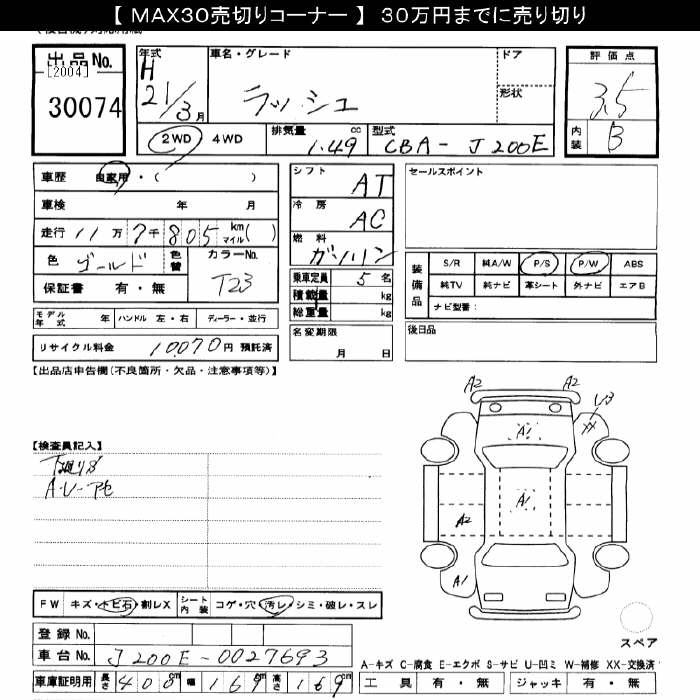 【 MAX30売切りコーナー 】 30万円までに売り切り
出品No.
[2004]
30074
年式
H
21/3月
車名・グレード
ラッシュ
ドア
形状
2WD 4WD
排気量 cc
1.49
型式
CBA-J200E
評価点
3.5
内装
B
車歴 自家用・( )
車検 年 月
走行 11万7千805 km マイル( )
色 ゴールド 色替
カラーNo.
T23
保証書 有・無
モデル年式 年 ハンドル 左・右 ディーラー・並行
リサイクル料金 10070円 預託済
シフト
AT
冷房
AC
燃料
ガソリン
乗車定員 5名
積載量 kg
総重量 kg
名変期限
月 日
セールスポイント
装備品
S/R 純A/W P/S P/W ABS
純TV 純ナビ 革シート 外ナビ エアB
ナビ型番:
後日品
【出品店申告欄(不良箇所・欠品・注意事項等)】
【検査員記入】
A2 A2
A1
XX
A1
A2
A1
FW キズ・トビ石・割レX シート内装 コゲ・穴・汚レ・シミ・破レ・スレ
登録No.
車台No. J200E-0027693
車庫証明用 長さ 408cm 幅 169cm 高さ 169cm
スペア
A-キズ C-腐食 E-エクボ S-サビ U-凹ミ W-補修 XX-交換済
工具 有・無 ジャッキ 有・無